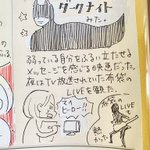 ダークナイト
みた。
弱っている自分をふるい立たせる
メッセージを感じる映画だった。
夜はTV放送されていた布袋の
LIVEを観た。
マイ
ヒーロー!!
LIVE